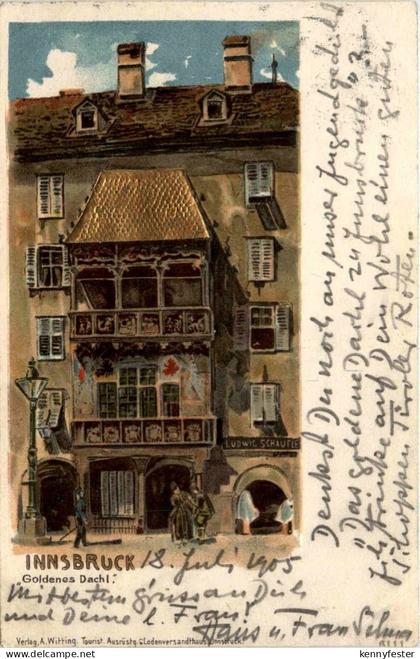 Denkst Du noch an unser Jugendgedicht
"Das goldene Dachl zu Innsbruck"?
Ich trinke auf Dein Wohl einen guten
Schoppen Tiroler Roten.
LUDWIG SCHAUFLE
INNSBRUCK 18. Juli 1905
Goldenes Dachl.
Mit besten Grüssen an Dich
und Deine l. Frau!
Hans u. Frau
Verlag A. Witting. Tourist. Ausrüstg. & Lodenversandthaus, Innsbruck.
kennyfester
www.delcampe.net